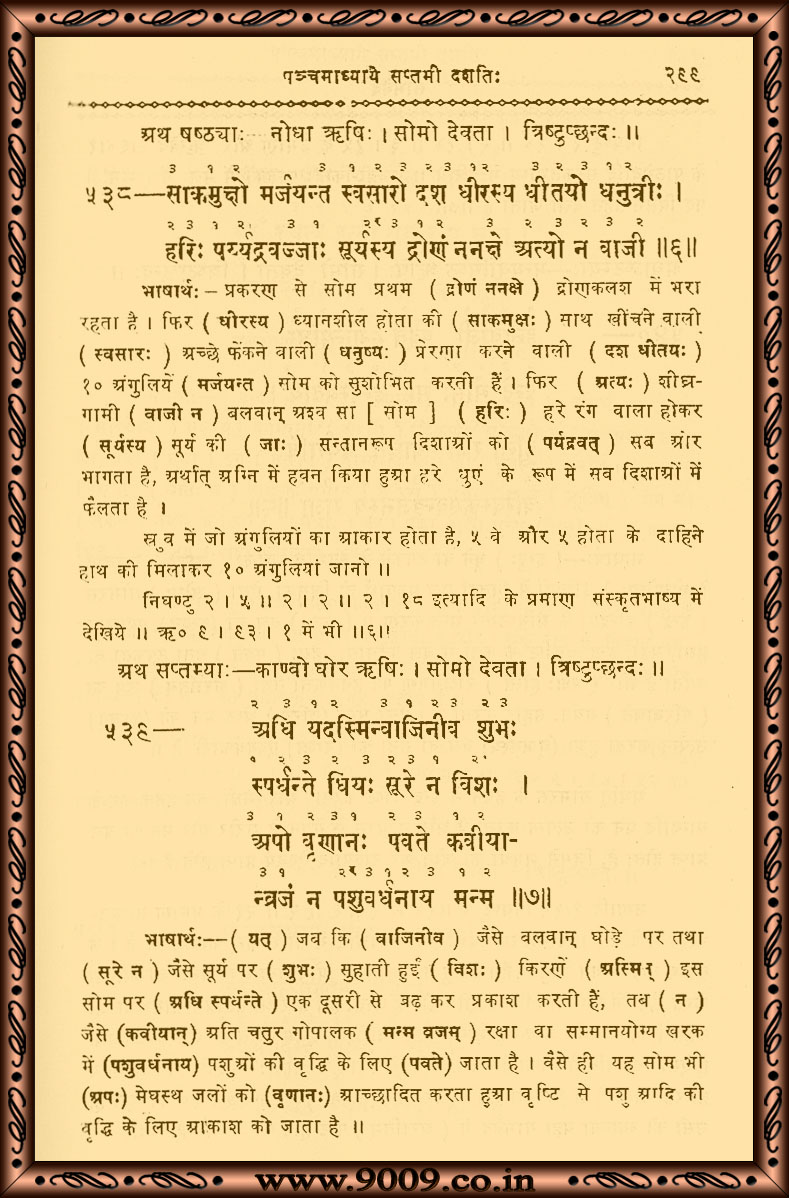 पञ्चमाध्याये सप्तमी दशतिः २९९
अथ षष्ठ्याः नोधा ऋषिः । सोमो देवता । त्रिष्टुप्छन्दः ॥
३ १ २ ३ १ २ ३ २ ३ १२ ३ २ ३ १ २
५३८—साकमुक्षो मर्जयन्त स्वसारो दश धीरस्य धीतयो धनुत्रीः ।
२ ३ १ २ ३ १ २र ३ १ २ ३ २ ३ २ ३ २
हरिः पर्य्यद्रवज्जाः सूर्यस्य द्रोणं ननक्षे अत्यो न वाजी ॥६॥
भाषार्थः – प्रकरण से सोम प्रथम ( द्रोणं ननक्षे ) द्रोणकलश में भरा
रहता है । फिर ( धीरस्य ) ध्यानशील होता की ( साकमुक्षः ) साथ खींचने वाली
( स्वसारः ) अच्छे फेंकने वाली ( धनुष्यः ) प्रेरणा करने वाली ( दश धीतयः )
१० अंगुलियें ( मर्जयन्त ) सोम को सुशोभित करती हैं । फिर ( अत्यः ) शीघ्र-
गामी ( वाजी न ) बलवान् अश्व सा [ सोम ] ( हरिः ) हरे रंग वाला होकर
( सूर्यस्य ) सूर्य की ( जाः ) सन्तानरूप दिशाओं को ( पर्यद्रवत् ) सब ओर
भागता है, अर्थात् अग्नि में हवन किया हुआ हरे धुएं के रूप में सब दिशाओं में
फैलता है ।
स्रुव में जो अंगुलियों का आकार होता है, ५ वे और ५ होता के दाहिने
हाथ की मिलाकर १० अंगुलियां जानो ॥
निघण्टु २ । ५ ॥ २ । २ ॥ २ । १८ इत्यादि के प्रमाण संस्कृतभाष्य में
देखिये ॥ ऋ० ९ । ९३ । १ में भी ॥६॥
अथ सप्तम्याः—काण्वो घोर ऋषिः । सोमो देवता । त्रिष्टुप्छन्दः ॥
२ ३ १ २ ३ १ २ ३ २ ३
५३९— अधि यदस्मिन्वाजिनीव शुभः
१ २ ३ २ ३ २ ३ १ २
स्पर्धन्ते धियः सूरे न विशः ।
३ १ २ ३ १ २ ३ १ २
अपो वृणानः पवते कवीया-
३ १ २र ३ १ २ ३ १ २
न्व्रजं न पशुवर्धनाय मन्म ॥७॥
भाषार्थः—( यत् ) जब कि ( वाजिनीव ) जैसे बलवान् घोड़े पर तथा
( सूरे न ) जैसे सूर्य पर ( शुभः ) सुहाती हुई ( विशः ) किरणें ( अस्मिन् ) इस
सोम पर ( अधि स्पर्धन्ते ) एक दूसरी से बढ़ कर प्रकाश करती हैं, तब ( न )
जैसे (कवीयान्) अति चतुर गोपालक ( मन्म व्रजम् ) रक्षा वा सम्मानयोग्य खरक
में (पशुवर्धनाय) पशुओं की वृद्धि के लिए (पवते) जाता है । वैसे ही यह सोम भी
(अपः) मेघस्थ जलों को (वृणानः) आच्छादित करता हुआ वृष्टि से पशु आदि की
वृद्धि के लिए आकाश को जाता है ॥
www.9009.co.in